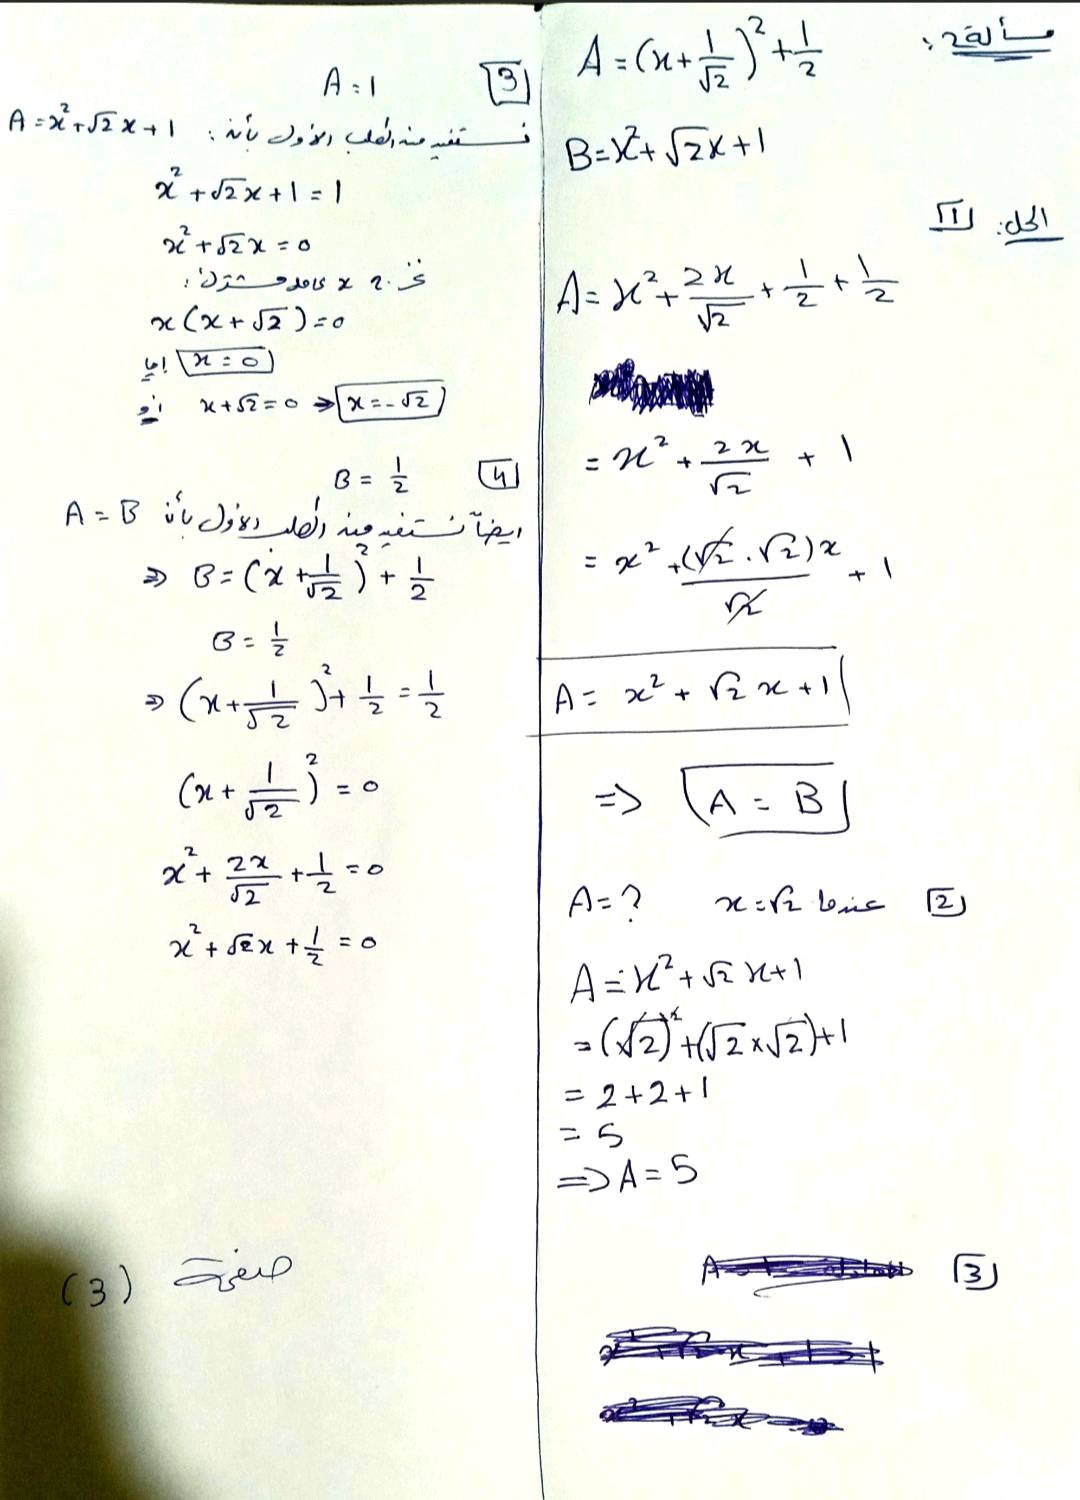 مسألة 2:
A = (x + 1/√2)² + 1/2
B = x² + √2x + 1
الحل: 1
A = x² + 2x/√2 + 1/2 + 1/2
= x² + 2x/√2 + 1
= x² + (√2 . √2)x/√2 + 1
A = x² + √2 x + 1
=> A = B
2 عندما x = √2 A = ?
A = x² + √2 x + 1
= (√2)² + (√2 × √2) + 1
= 2 + 2 + 1
= 5
=> A = 5
3
3 A = 1
نستفيد من الطلب الأول بأن: A = x² + √2 x + 1
x² + √2 x + 1 = 1
x² + √2 x = 0
x عامل مشترك:
x(x + √2) = 0
إما x = 0
أو x + √2 = 0 => x = -√2
4 B = 1/2
أيضاً نستفيد من الطلب الأول بأن A = B
=> B = (x + 1/√2)² + 1/2
B = 1/2
=> (x + 1/√2)² + 1/2 = 1/2
(x + 1/√2)² = 0
x² + 2x/√2 + 1/2 = 0
x² + √2x + 1/2 = 0
صفحة (3)